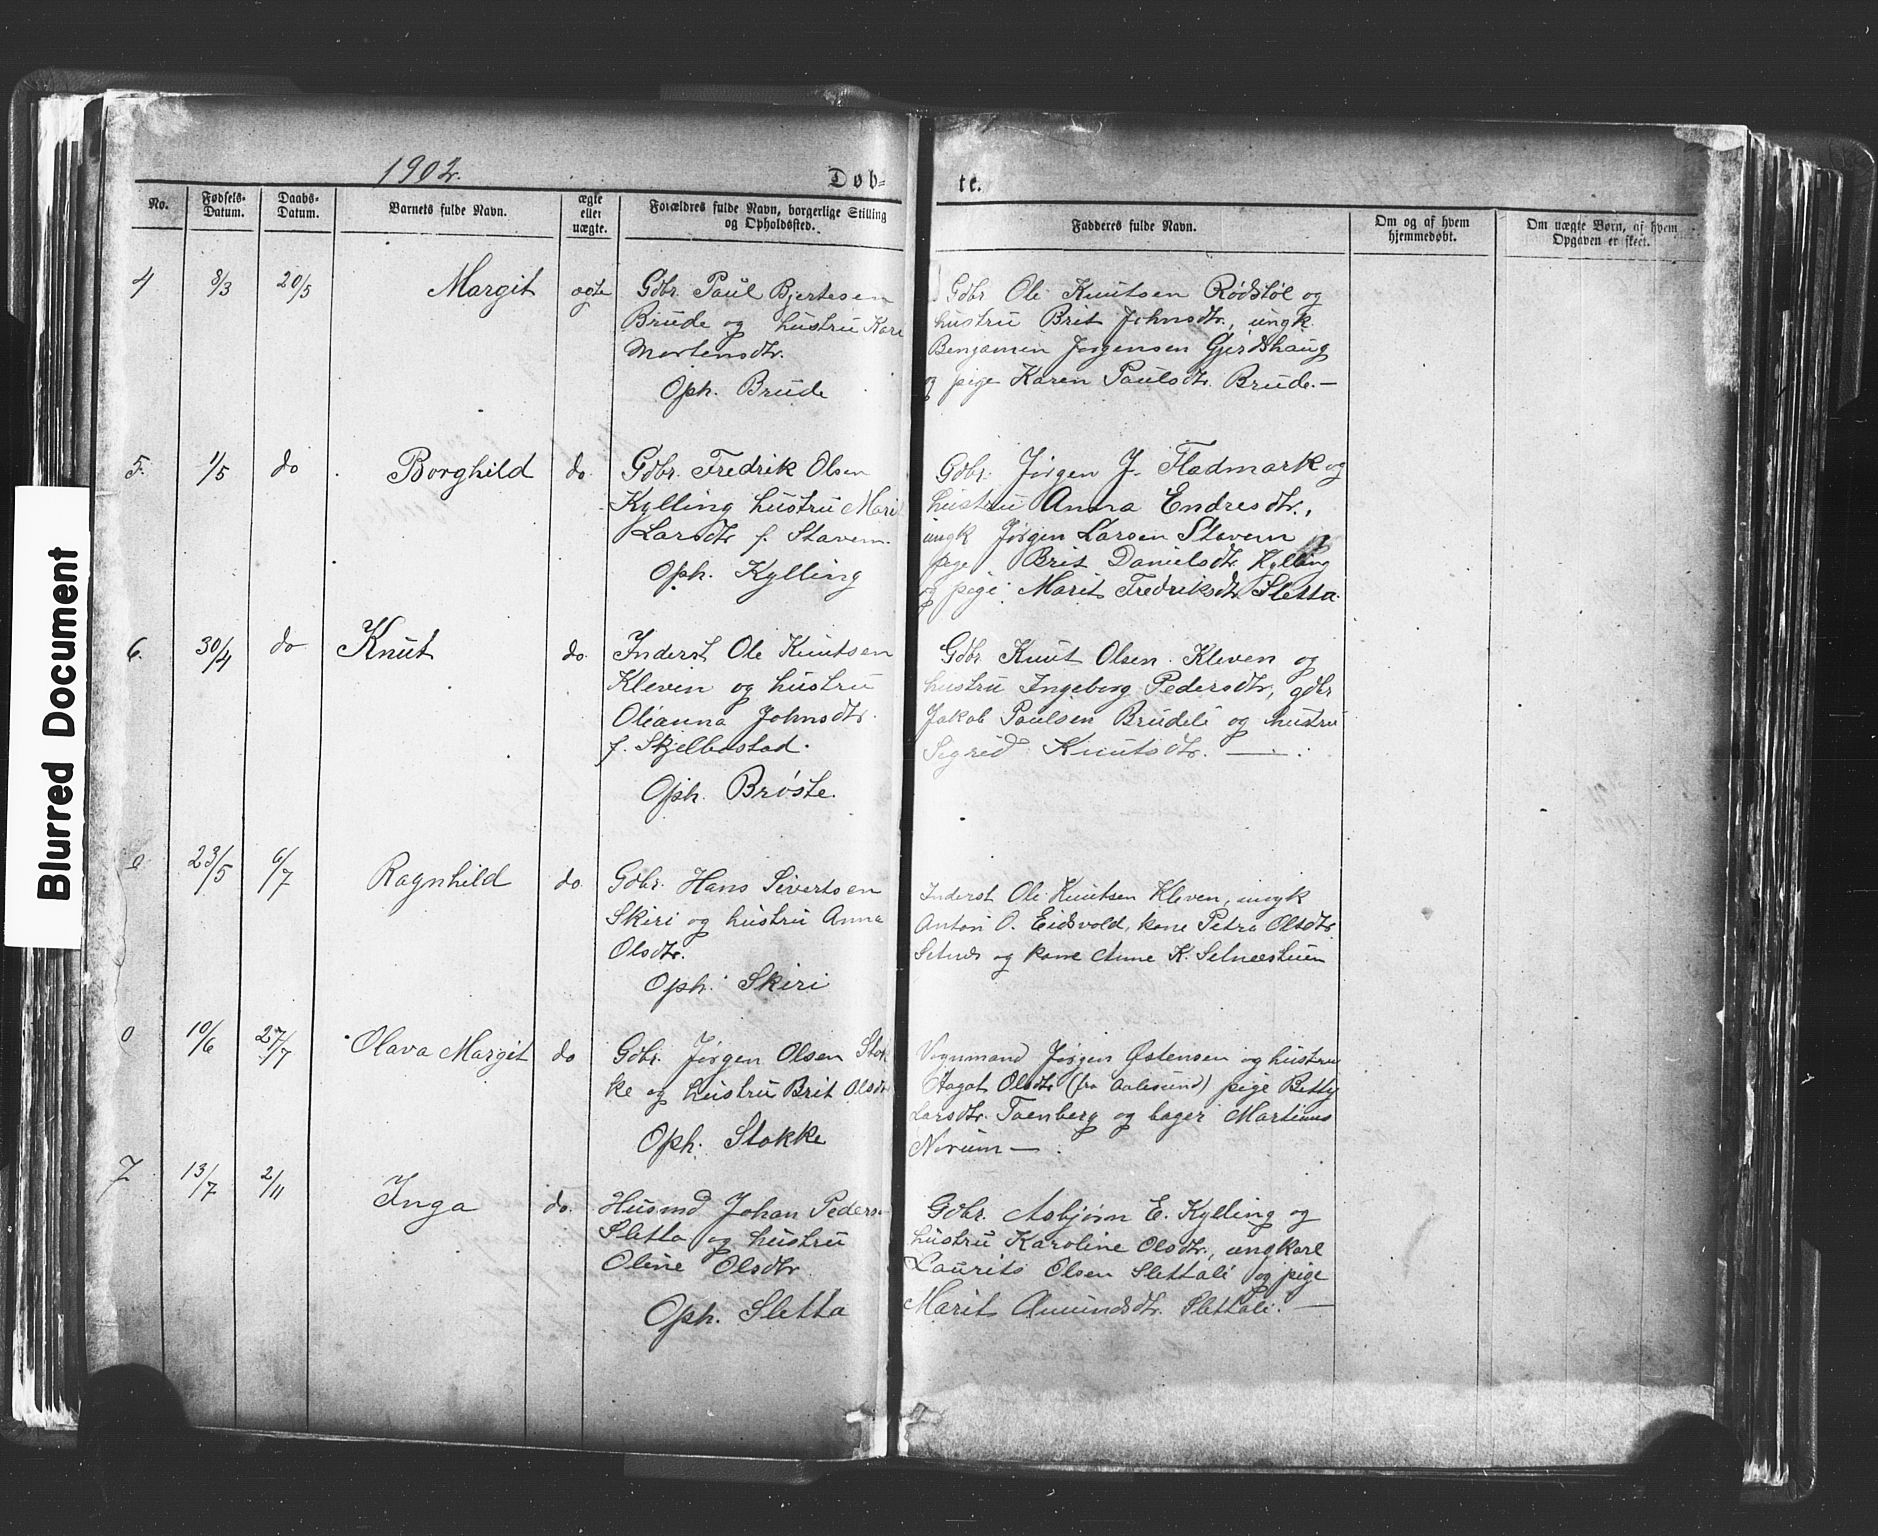 1902.
Døb-
te.
No.
Fødsels-
Datum.
Daabs-
Datum.
Barnets fulde Navn.
ægte
eller
uægte.
Forældres fulde Navn, borgerlige Stilling
og Opholdssted.
Fadderes fulde Navn.
Om og af hvem
hjemmedøbt.
Om uægte Børn, af hvem
Opgaven er skeet.
4
8/3
20/5
Margit
ægte
Gdbr. Paul Bjertesen
Brude og hustru Kari
Mortensdtr.
Oph. Brude
Gdbr Ole Knutsen Rødstøl og
hustru Brit Johnsdtr., ungk.
Benjamin Jørgensen Gjerdshaug
og pige Karen Paulsdtr. Brude.—
5.
1/5
do
Borghild
do.
Gdbr. Fredrik Olsen
Kylling hustru Marit
Larsdtr f. Stavem.
Oph. Kylling
Gdbr. Jørgen J. Fladmark og
hustru Anna Endresdtr.,
ungk Jørgen Larsen Stavem
pige Brit Danielsdtr Kylling
og pige Marit Fredriksdtr Sletta.
6.
30/4
do
Knut
do.
Inderst Ole Knutsen
Kleven og hustru
Olianna Johnsdtr.
f. Skjelbostad.
Oph. Brøste.
Gdbr Knut Olsen Kleven og
hustru Ingeborg Pedersdtr, gdbr
Jakob Paulsen Brudeli og hustru
Sigrid Knutsdtr. —
23/5
6/7
Ragnhild
do
Gdbr. Hans Sivertsen
Skiri og hustru Anna
Olsdtr.
Oph. Skiri
Inderst Ole Knutsen Kleven, ungk
Anton O. Eidsvold, kone Petra Olsdtr
og kone Anne K. Selnesstuen
10/6
27/7
Olava Margit
do
Gdbr. Jørgen Olsen Stok
ke og hustru Brit Olsdtr
Oph. Stokke
Vognmand Jørgen Østensen og hustru
Aagot Olsdtr (fra Aalesund) pige Betty
Larsdtr. Tøenberg og bager Martinus
Norum —
7
13/7
2/11
Inga
do.
Husmd Johan Peders.
Sletta og hustru
Oline Olsdtr.
Oph. Sletta
Gdbr. Asbjørn E. Kylling og
hustru Karoline Olsdtr., ungkarl
Laurits Olsen Slettali og pige
Marit Amundsdtr. Slettali. —
Blurred Document